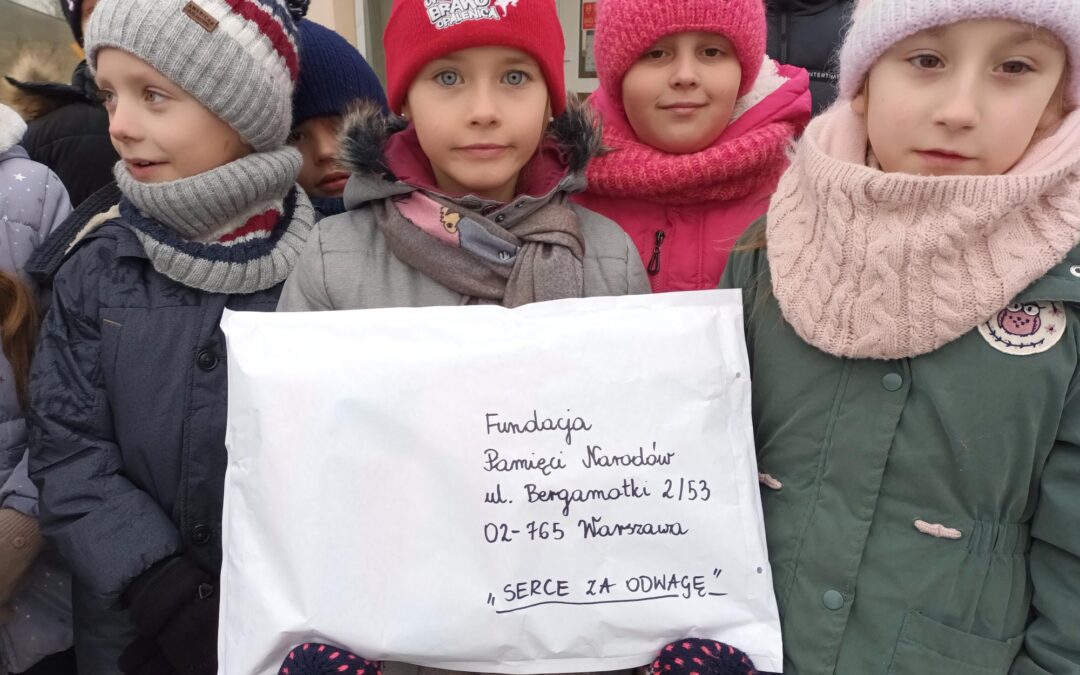 BRAKO
OPALENICA
Fundacja
Pamięci Narodów
ul. Bergamotki 2/53
02-765 Warszawa
„SERCE ZA ODWAGĘ”